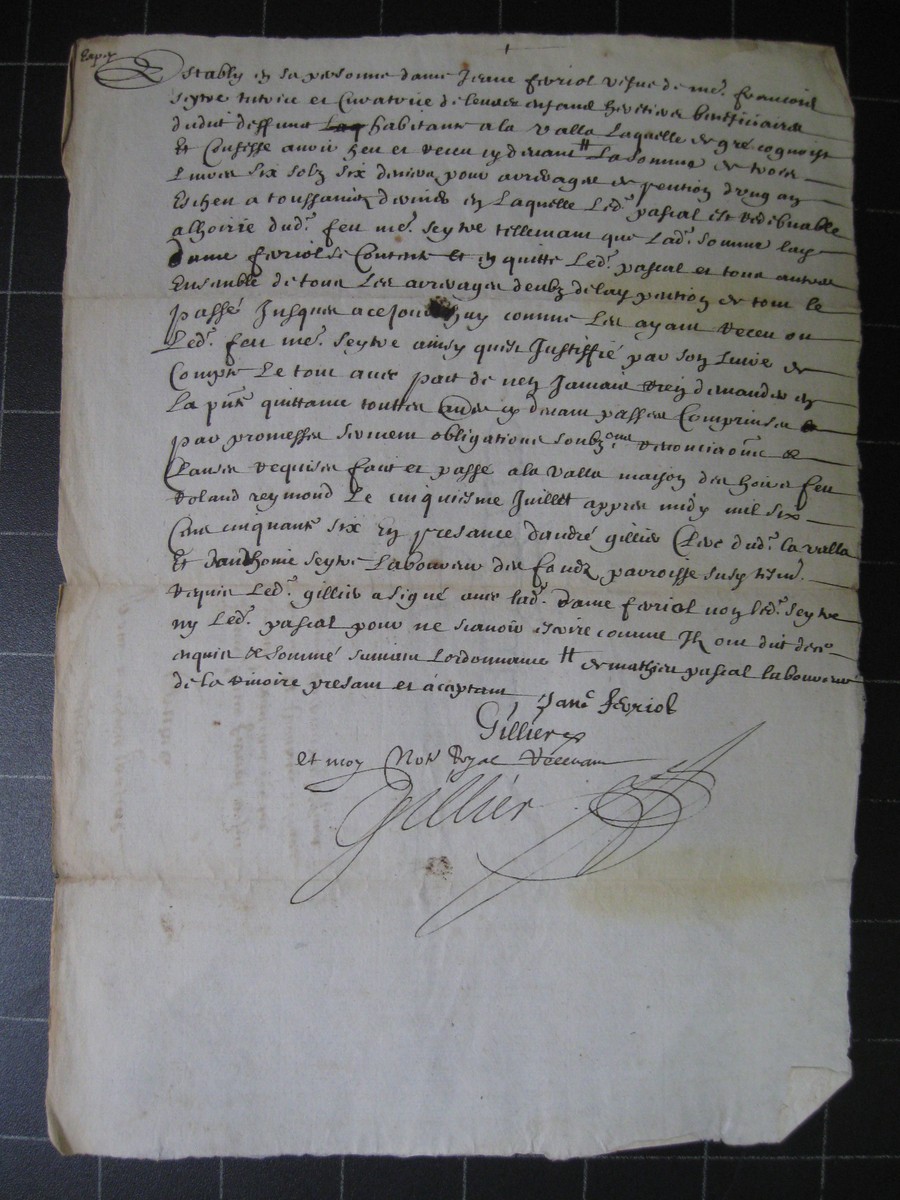 Exp.
Establÿ en sa personne dame Jeane ferriol vefve de me. francois
seytre tutrice et Curatrice de leurs enfans heritiers beneficiaires
dudit deffunt habitante a la valla Laquelle de gré cognoist
Et Confesse avoir heu et receu cy devant # La somme de trois
Livres six solz six deniers pour arreirages de pention d'ung an
Escheu a toussaintz dernier en Laquelle Led. pascal est redebuable
alhoirie dud. feu me. seytre tellemant que Lad. somme lad.
dame ferriol se Contente et en quitte Led. pascal et tous autres
Ensemble de tous Les arreirages deubz de lad. pention de tout le
passé Jusques a ce Jourdhuy comme Les ayant receu ou
Led. feu me. seytre ainsy quest Justiffié par son Livre de
Compte Le tout avec pact de nen Jamais rien demander en
La pnte quittance touttes autres cy devant passées Comprinses
par promesses serment obligations soubzons renonciaons &
Clauses requises faict et passé a la valla maison des hoirs feu
Roland reymond Le cinquiesme Juillet appres midy mil six
Cens cinquante six En presance dandré gillier Clerc dud. la valla
Et danthonie seytre Laboureur des faudz parroisse susd. tesmz.
requis Led. gillier a signé avec lad. dame ferriol non led. seytre
ny Led. pascal pour ne scavoir escrire comme Ilz ont dit de ce
enquis & sommé suivant Lordonnance # de mathieu pascal laboureur
de la rivoire presant et acceptant Jane ferriol
Gillier
et moy Not. Royal Recevant
Gillier